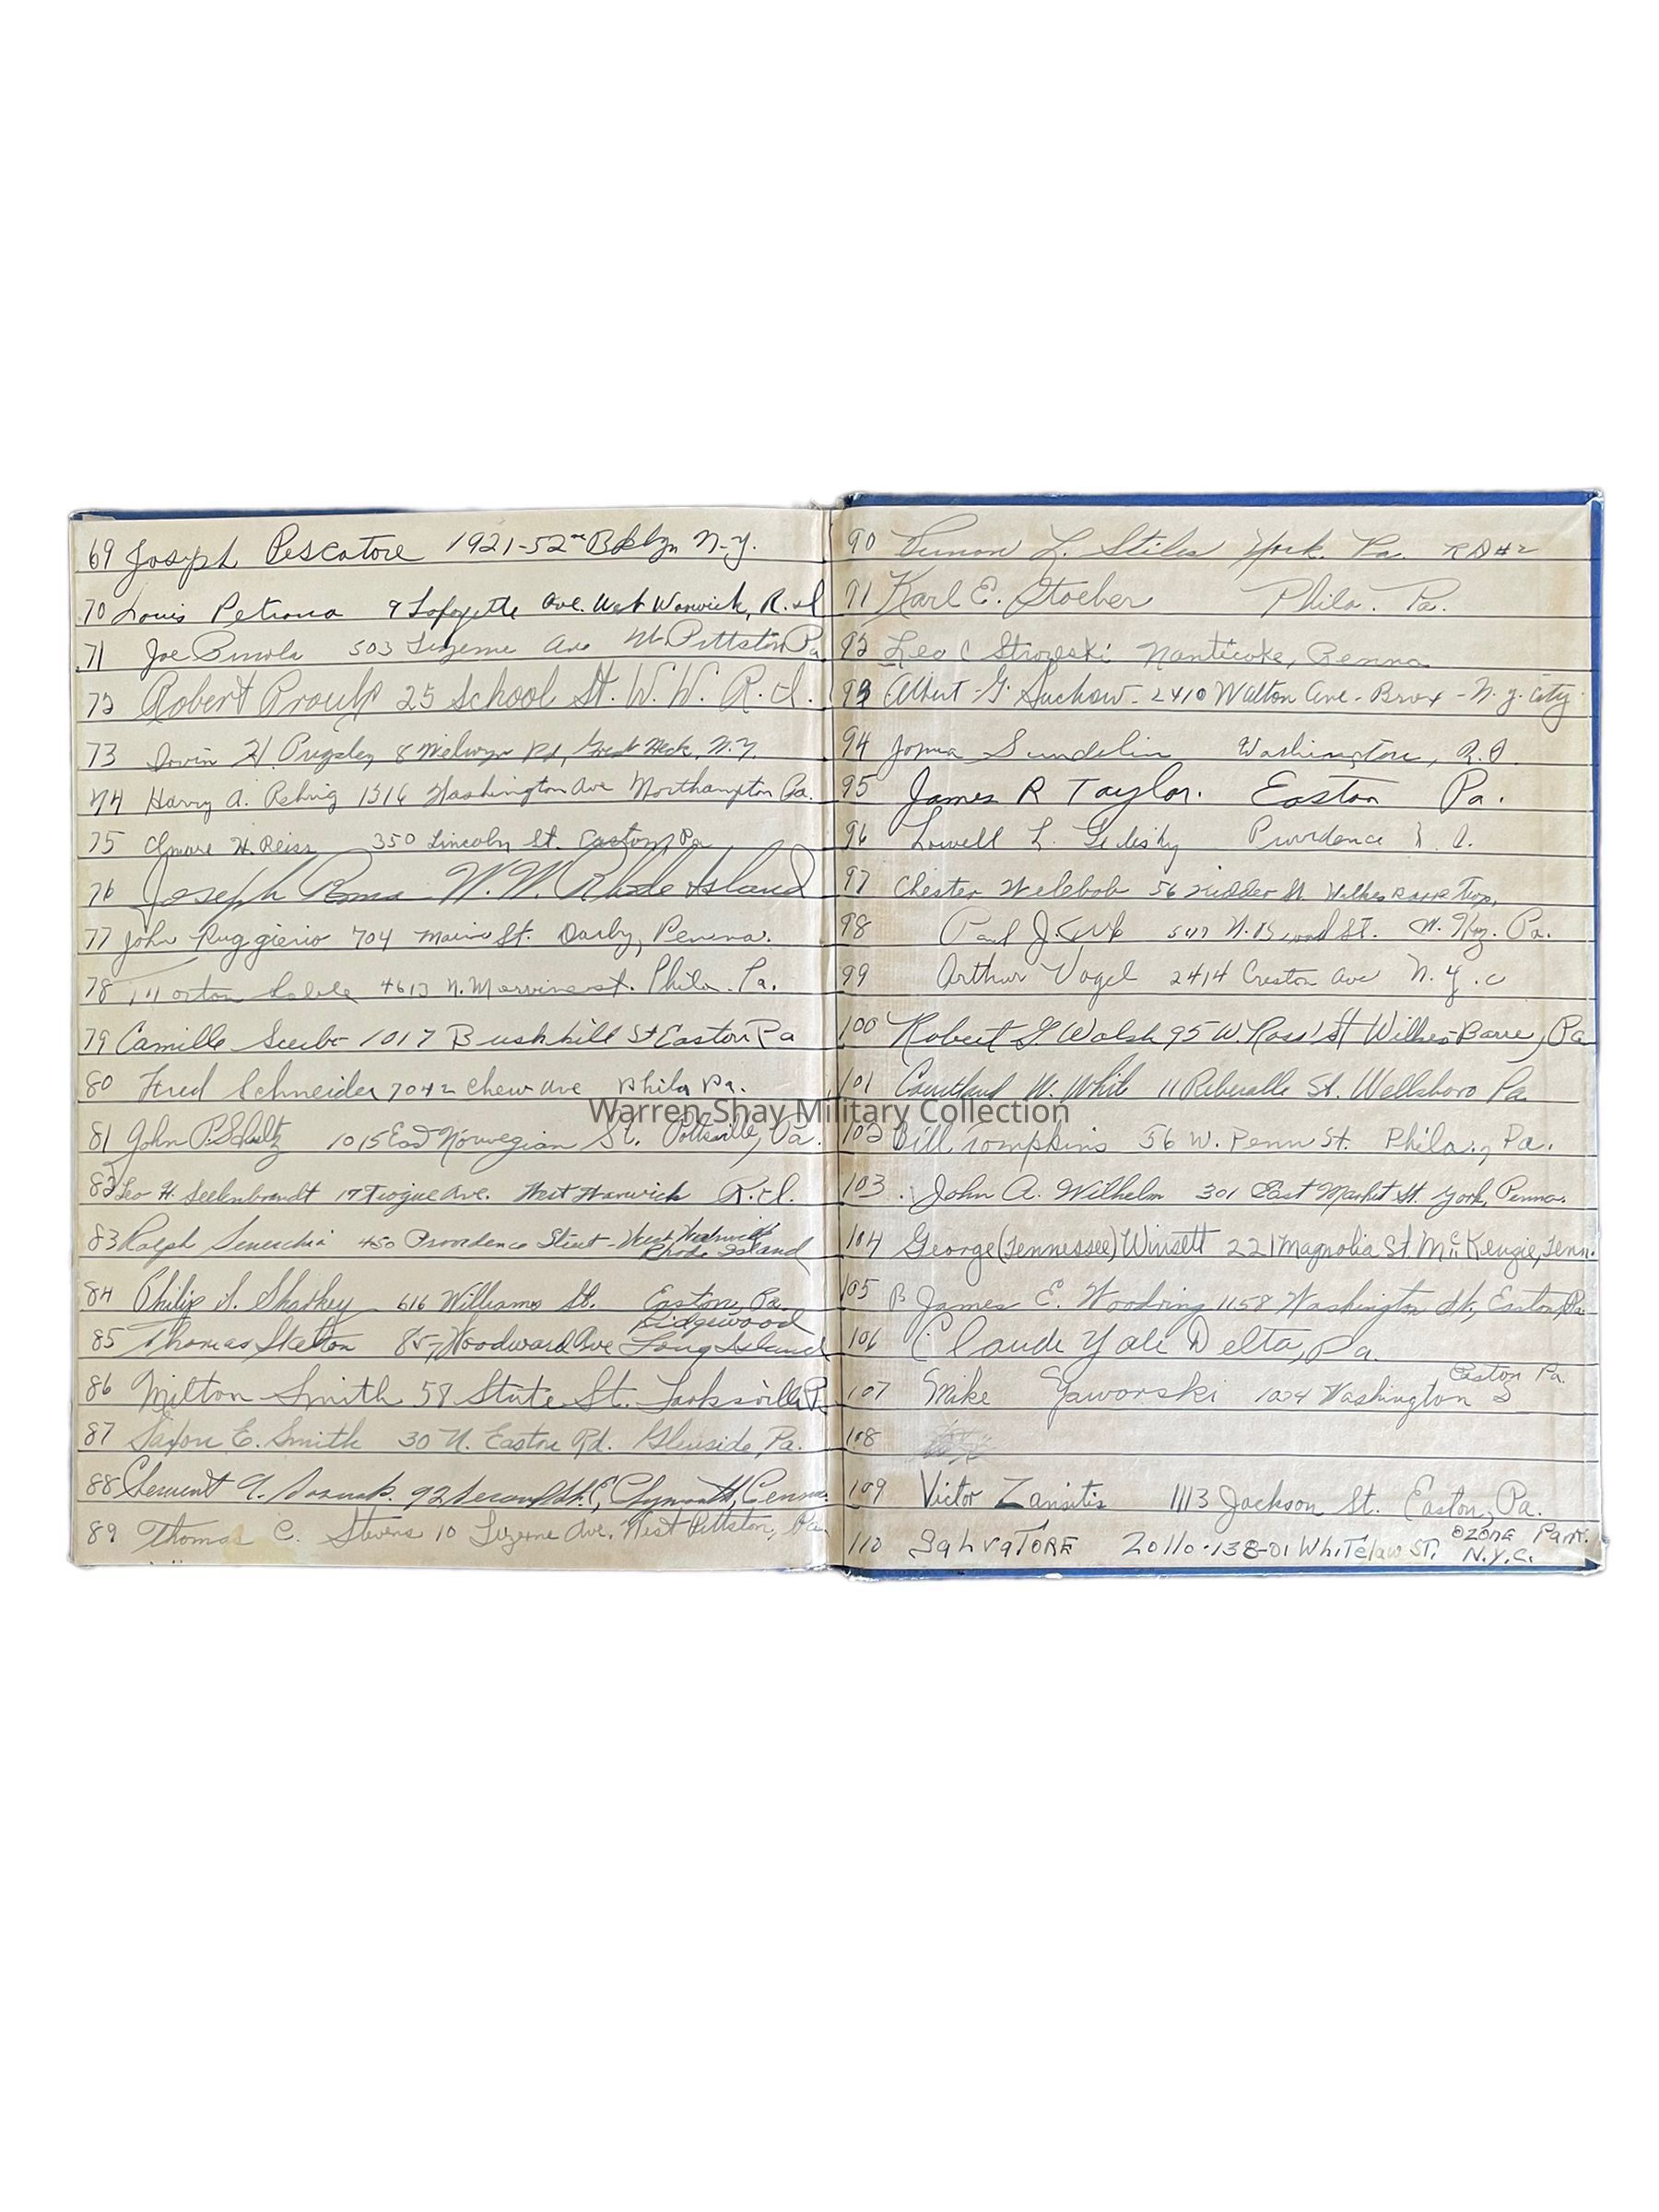 69 Joseph Pescatore 1921-52nd Bklyn N-Y.
70 Louis Petrona 9 Lafayette Ave. West Warwick, R.I
71 Joe 503 Luzerne Ave W Pittston Pa
72 Robert Proulx 25 School St. W.W. R.I.
73 Irvin H. Pugsley 8 Melwyn Rd, Great Neck, N.Y.
74 Harry A. Rehrig 1316 Washington Ave Northampton Pa.
75 Elmore H. Reiss 350 Lincoln St. Easton Pa
76 Joseph Roma W.W. Rhode Island
77 John Ruggierio 704 Main St. Darby, Penna.
78 Morton 4613 N. Marvine st. Phila. Pa.
79 Camille 1017 Bushkill St Easton Pa
80 Fred Schneider 7042 Chew Ave Phila Pa.
81 John P. Schultz 1015 East Norwegian St. Pottsville, Pa.
82 Leo H. Seelenbrandt 17 Tiogue Ave. West Warwick R.I.
83 Ralph Senerchia 450 Providence Street - West Warwick
Rhode Island
84 Philip Sharkey 616 Williams St. Easton, Pa.
Ridgewood
85 Thomas Skelton 857 Woodward Ave Long Island
86 Milton Smith 58 State St.
87 Saxon E. Smith 30 N. Easton Rd. Glenside, Pa.
88 92 Second St. Plymouth, Penna.
89 Thomas C. Stevens 10 Luzerne Ave. West Pittston, Pa.
90 L. Stiles York. Pa. RD#2
91 Karl E. Stoeber Phila. Pa.
92 Leo C Strowski Nanticoke, Penna
93 Albert G. Suchow - 2410 Walton Ave - Bronx - N.Y. City
94 Sundelin Washington,
95 James R Taylor. Easton Pa.
96 Lowell L. Providence
97 Chester Welebob 56 Wilkes Barre Twp,
98 Paul J. St. Pa.
99 Arthur Vogel 2414 Creston Ave N.Y.C
100 Robert G Walsh 95 W. Ross St Wilkes-Barre, Pa
101 Courtland W. White 11 St. Wellsboro Pa
Warren Shay Military Collection
102 Bill Tompkins 56 W. Penn St. Phila., Pa.
103. John A. Wilhelm 301 East Market St. York, Penna.
104 George (Tennessee) Winsett 221 Magnolia St. McKenzie, Tenn.
105 James E. Woodring 1158 Washington St, Easton, Pa.
106 Claude Yale Delta, Pa.
Easton Pa.
107 Mike Yaworski 1024 Washington
108
109 Victor Zansitis 1113 Jackson St. Easton, Pa.
OZONE Park.
110 SalvaTORE 138-01 WhiTelaw ST. N.Y.C.